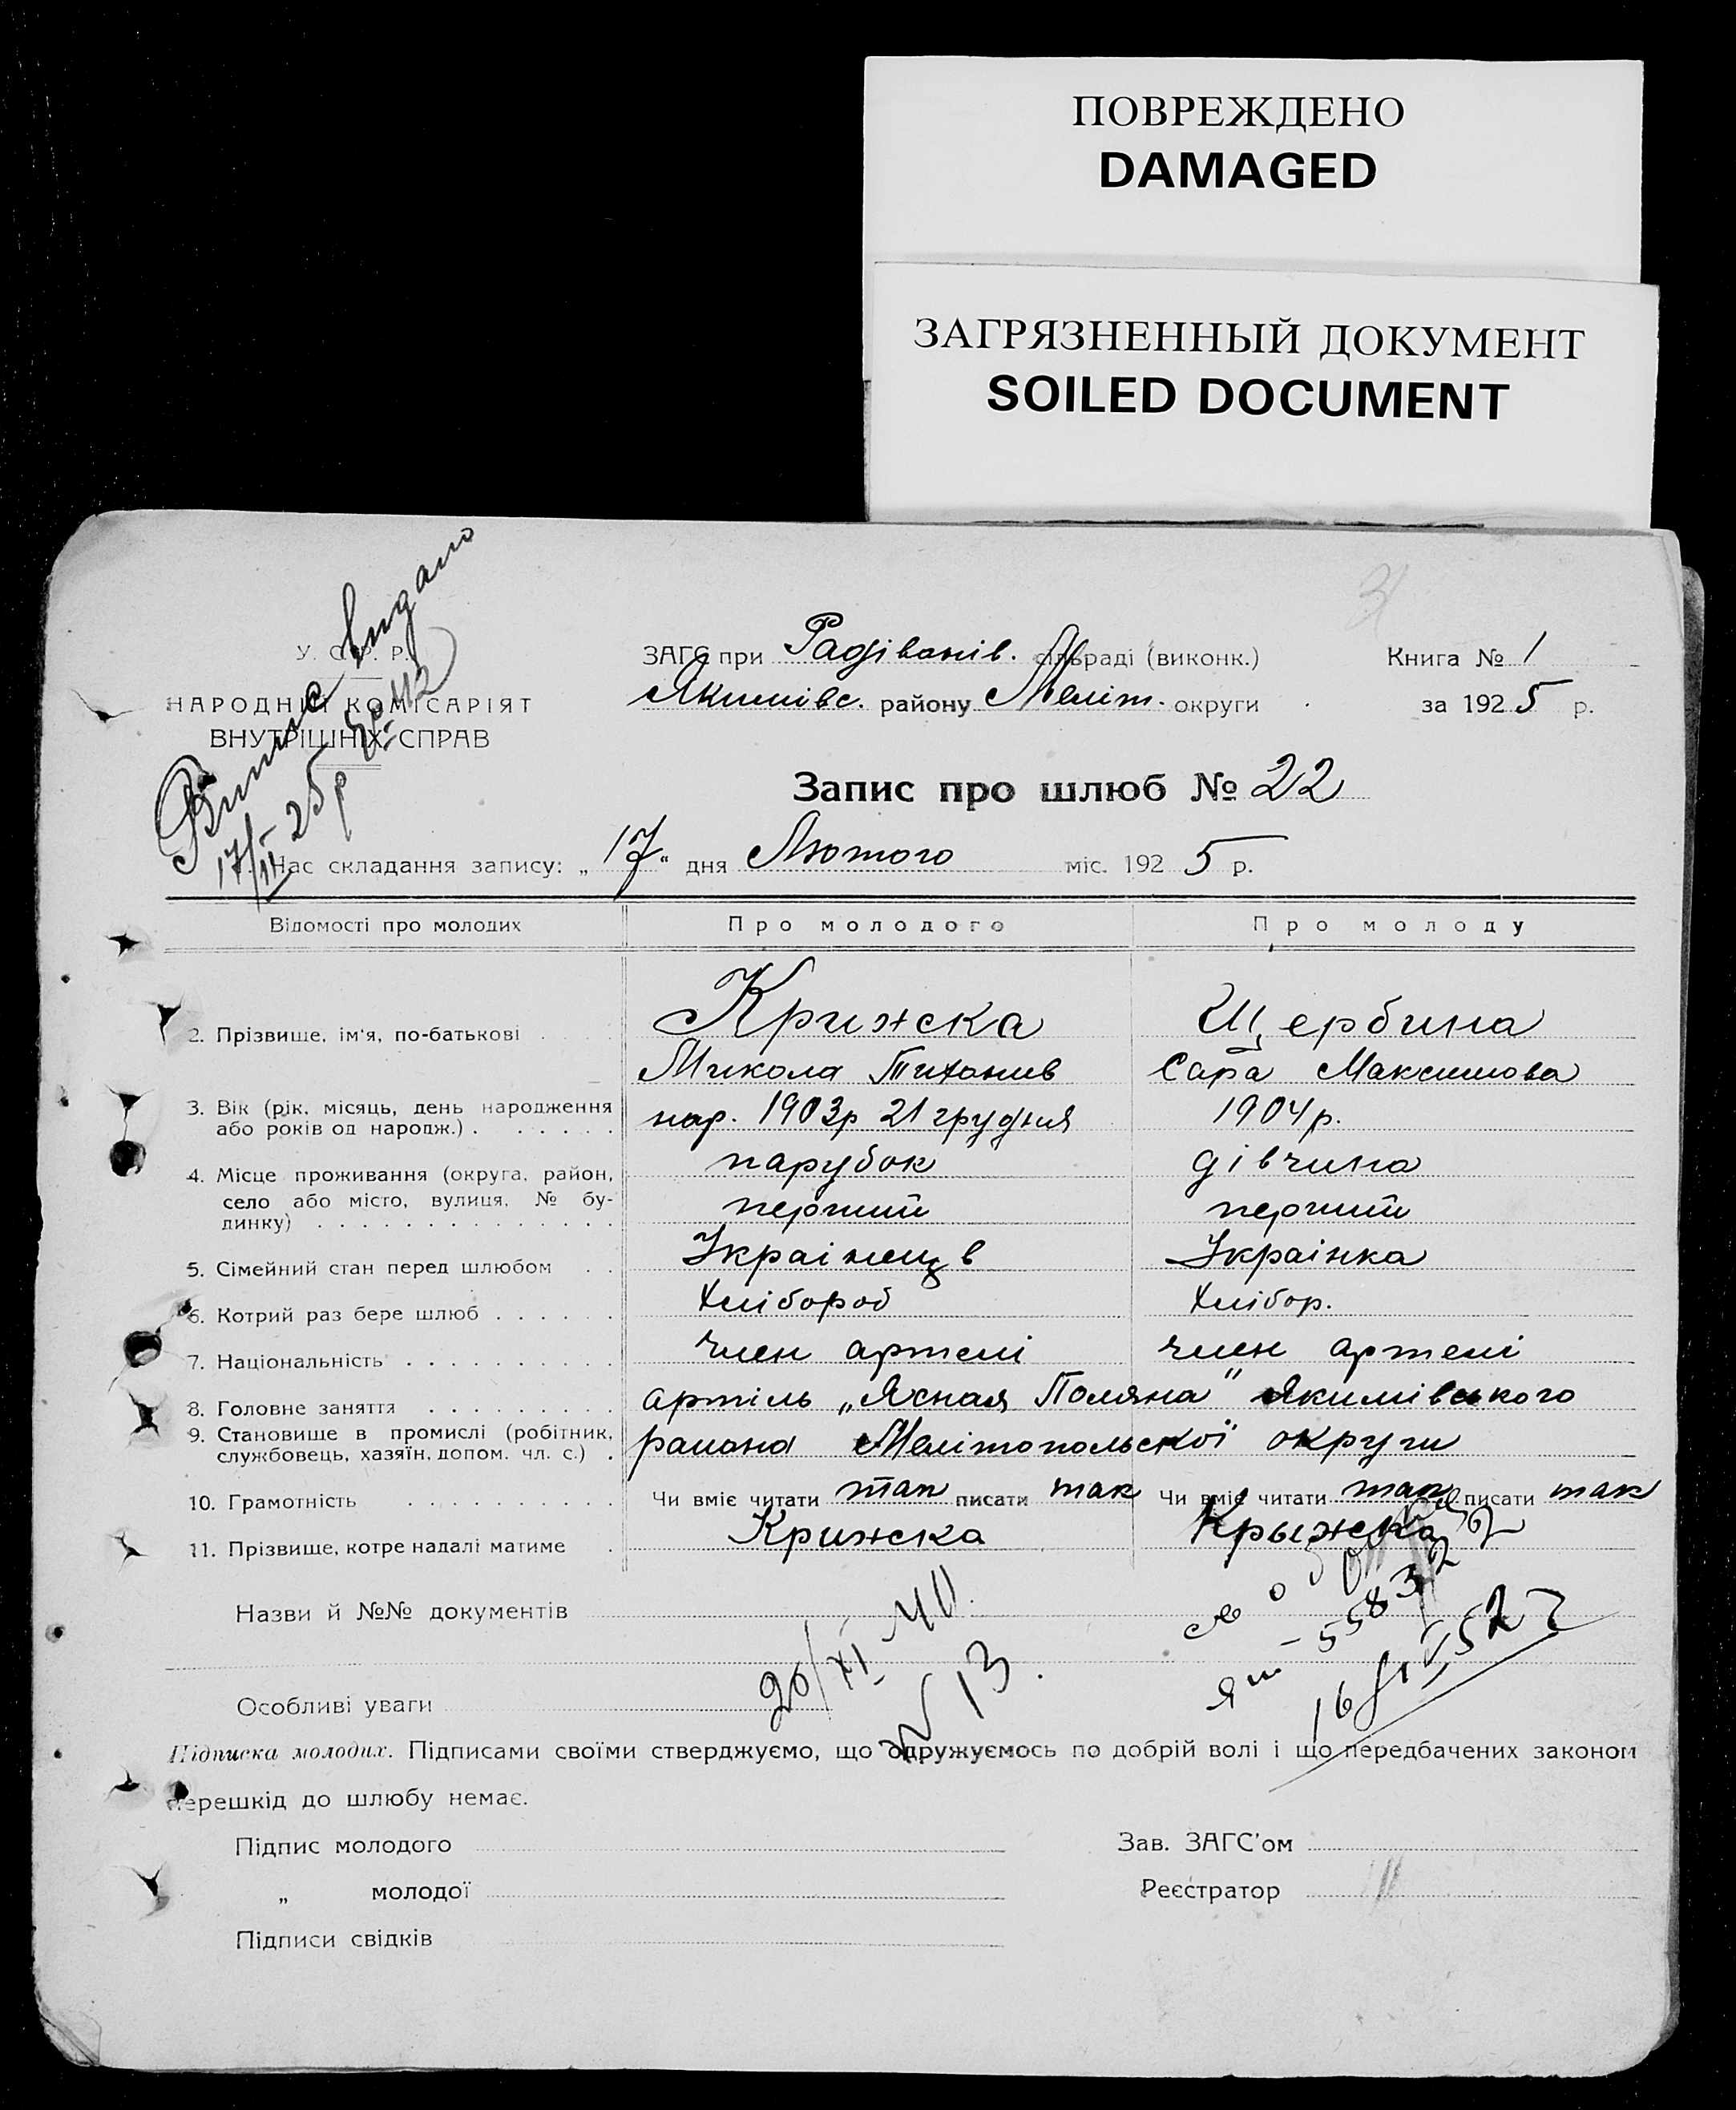 ПОВРЕЖДЕНО
DAMAGED
ЗАГРЯЗНЕННЫЙ ДОКУМЕНТ
SOILED DOCUMENT
Випис видано
17/II 25р № 42
У. С. Р. Р.
НАРОДНІЙ КОМІСАРІЯТ
ВНУТРІШНІХ СПРАВ
ЗАГС при Радіванів. сільраді (виконк.) Книга № 1
Якимівс. району Меліт. округи за 1925 р.
Запис про шлюб № 22
Час складання запису: „17“ дня Лютого міс. 1925 р.
Відомості про молодих Про молодого Про молоду
2. Прізвище, ім'я, по-батькові Крижска Щербина
Микола Тихонив Сара Максимова
3. Вік (рік, місяць, день народження або років од народж.) нар. 1903р 21 грудня 1904р.
4. Місце проживання (округа, район, село або місто, вулиця, № будинку) парубок дівчина
перший перший
5. Сімейний стан перед шлюбом Українець Українка
6. Котрий раз бере шлюб Хлібороб Хлібор.
7. Національність член артелі член артелі
8. Головне заняття артіль „Ясная Поляна" Якимівського
9. Становище в промислі (робітник, службовець, хазяїн, допом. чл. с.) района Мелітопольскої округи
10. Грамотність Чи вміє читати так писати так Чи вміє читати так писати так
11. Прізвище, котре надалі матиме Крижска Крыжска
Назви й №№ документів
20/XI 40
N 13.
Особливі уваги
Підписка молодих. Підписами своїми стверджуємо, що одружуємось по добрій волі і що передбачених законом
перешкід до шлюбу немає.
Підпис молодого Зав. ЗАГС'ом
„ молодої Реєстратор
Підписи свідків